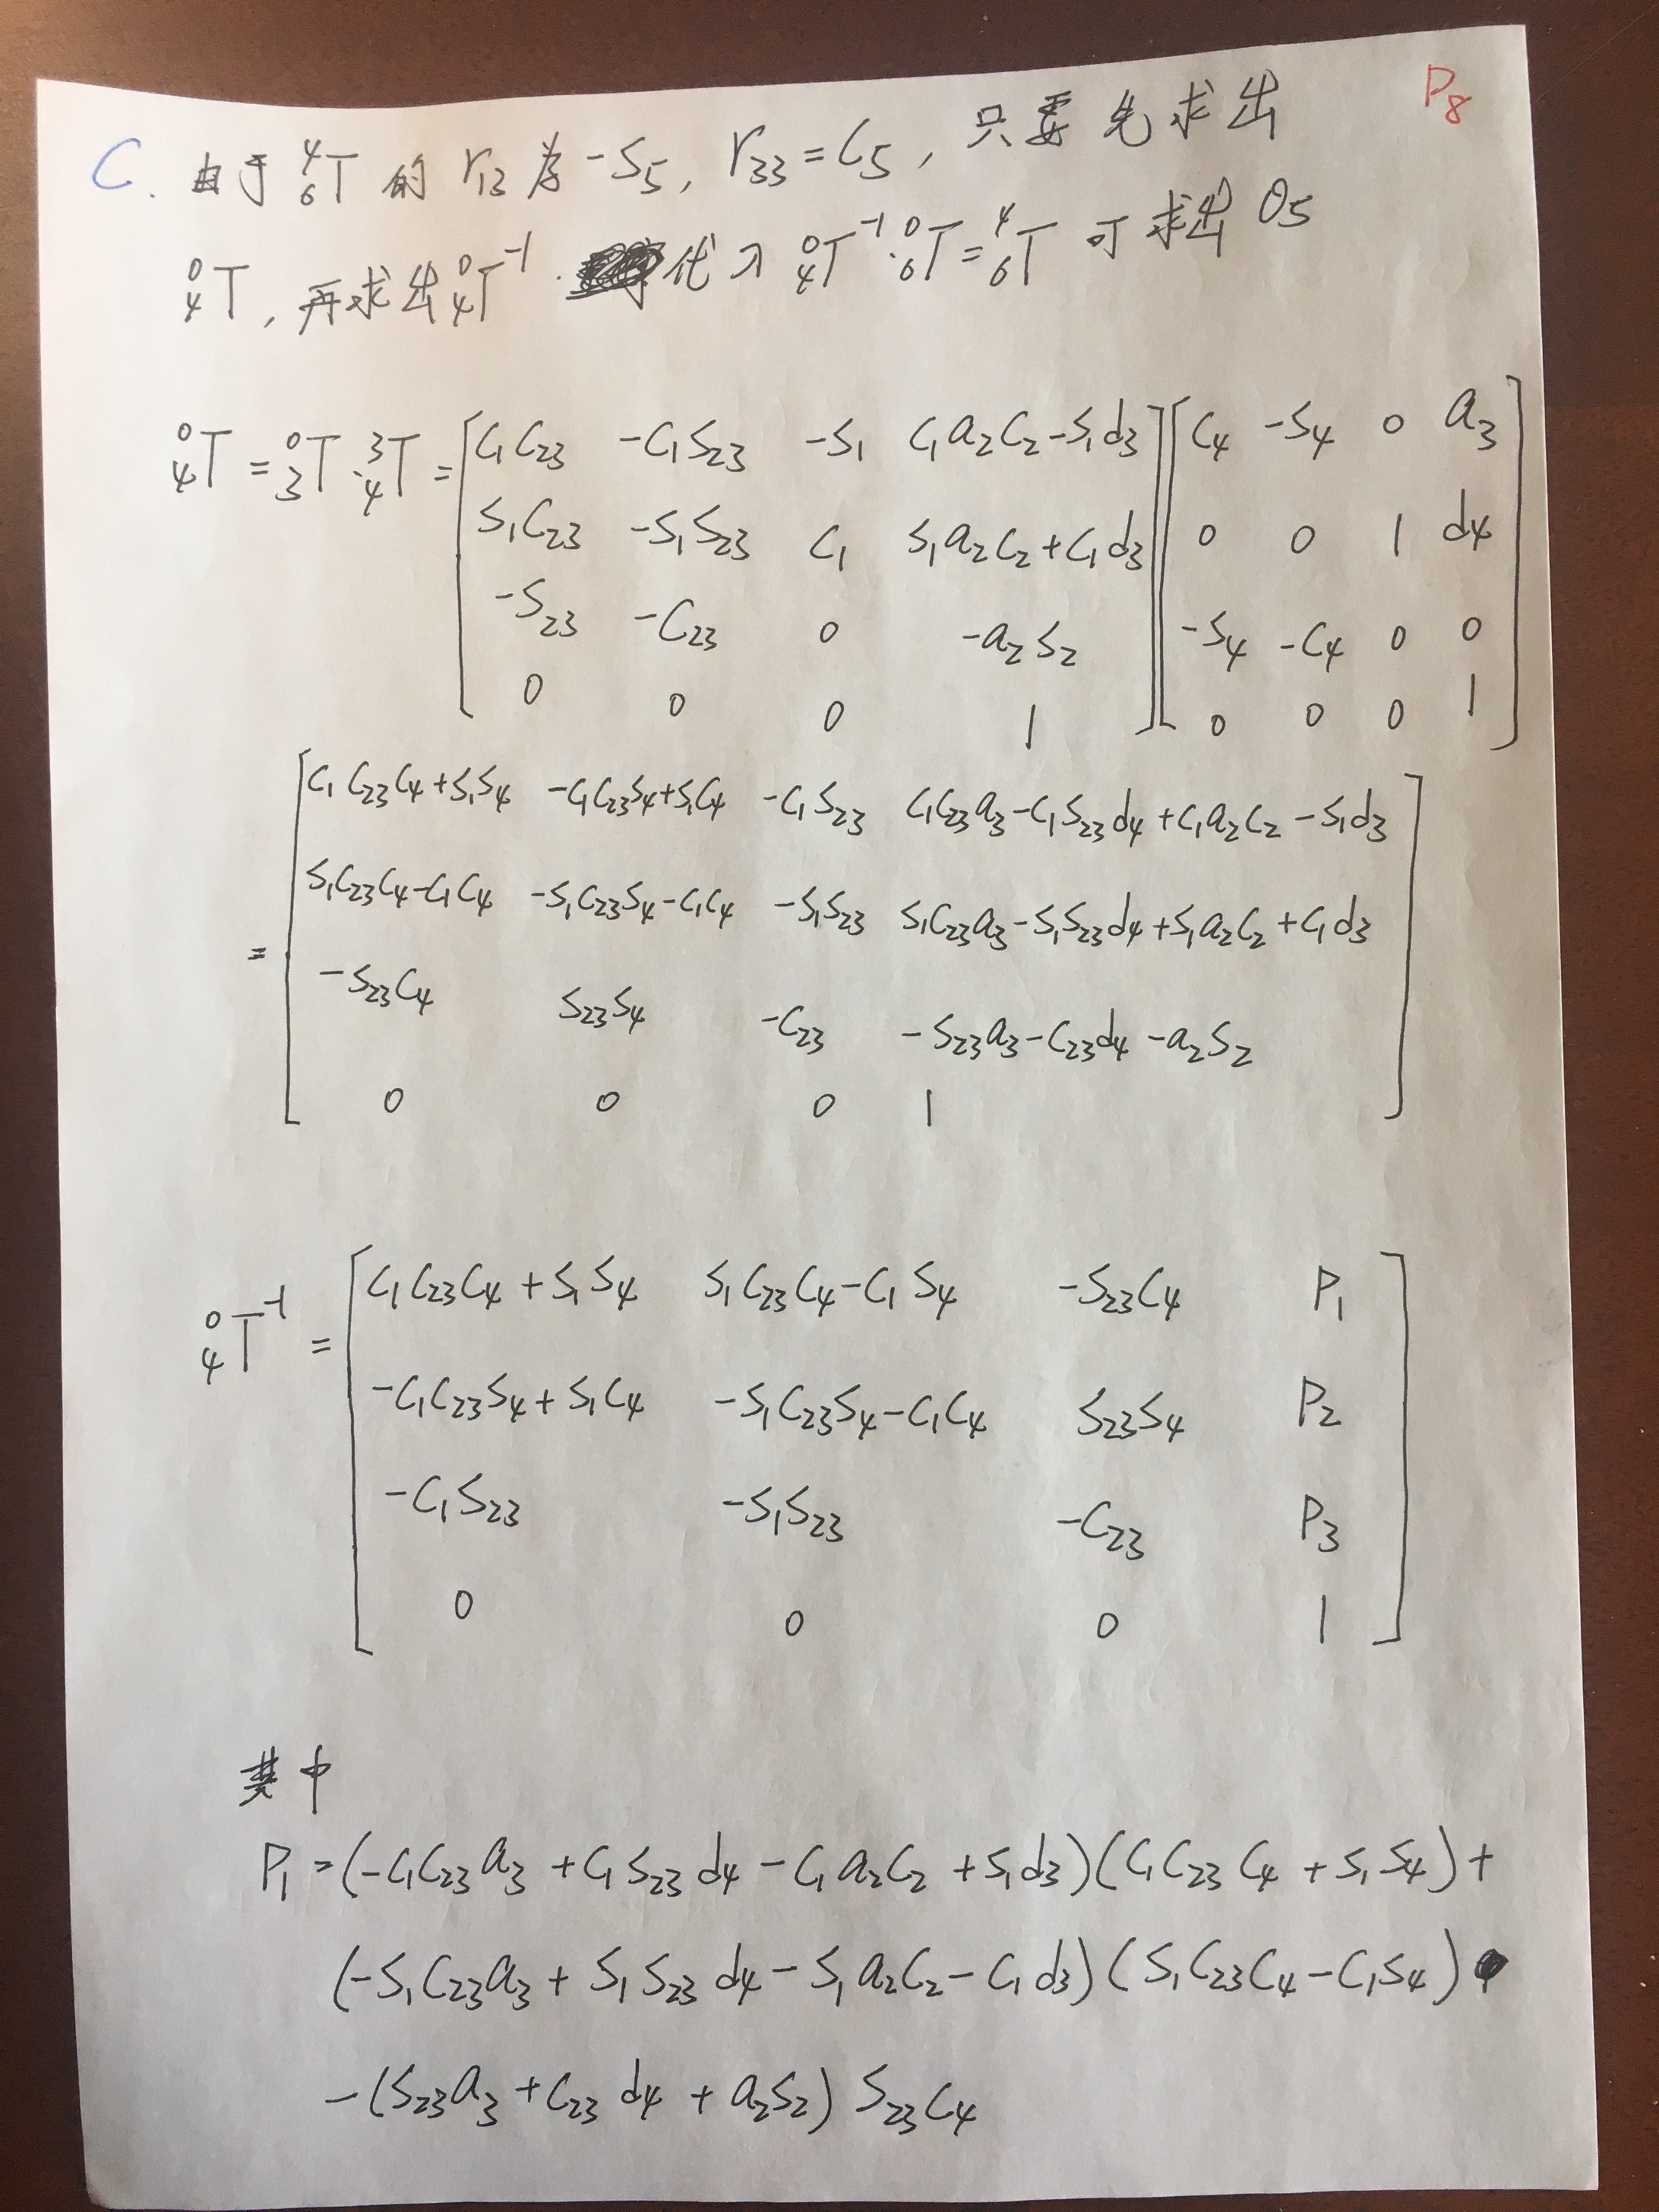 P8
C. 由于 ⁴₆T 的 r13 为 -S5, r33=C5, 只要先求出
⁰₄T, 再求出 ⁰₄T⁻¹. 代入 ⁰₄T⁻¹·⁰₆T=⁴₆T 可求出 θ5
⁰₄T = ⁰₃T·³₄T = [C1C23 -C1S23 -S1 C1a2C2-S1d3] [C4 -S4 0 a3]
S1C23 -S1S23 C1 S1a2C2+C1d3 0 0 1 d4
-S23 -C23 0 -a2S2 -S4 -C4 0 0
0 0 0 1 0 0 0 1
= [C1C23C4+S1S4 -C1C23S4+S1C4 -C1S23 C1C23a3-C1S23d4+C1a2C2-S1d3]
S1C23C4-C1C4 -S1C23S4-C1C4 -S1S23 S1C23a3-S1S23d4+S1a2C2+C1d3
-S23C4 S23S4 -C23 -S23a3-C23d4-a2S2
0 0 0 1
⁰₄T⁻¹ = [C1C23C4+S1S4 S1C23C4-C1S4 -S23C4 P1]
-C1C23S4+S1C4 -S1C23S4-C1C4 S23S4 P2
-C1S23 -S1S23 -C23 P3
0 0 0 1
其中
P1=(-C1C23a3+C1S23d4-C1a2C2+S1d3)(C1C23C4+S1S4)+
(-S1C23a3+S1S23d4-S1a2C2-C1d3)(S1C23C4-C1S4)
-(S23a3+C23d4+a2S2)S23C4